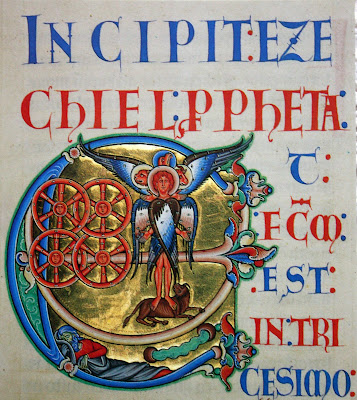 INCIPIT:EZE
CHIEL:PPHETA:
T:
:FCM:
:EST:
IN:TRI
CESIMO: